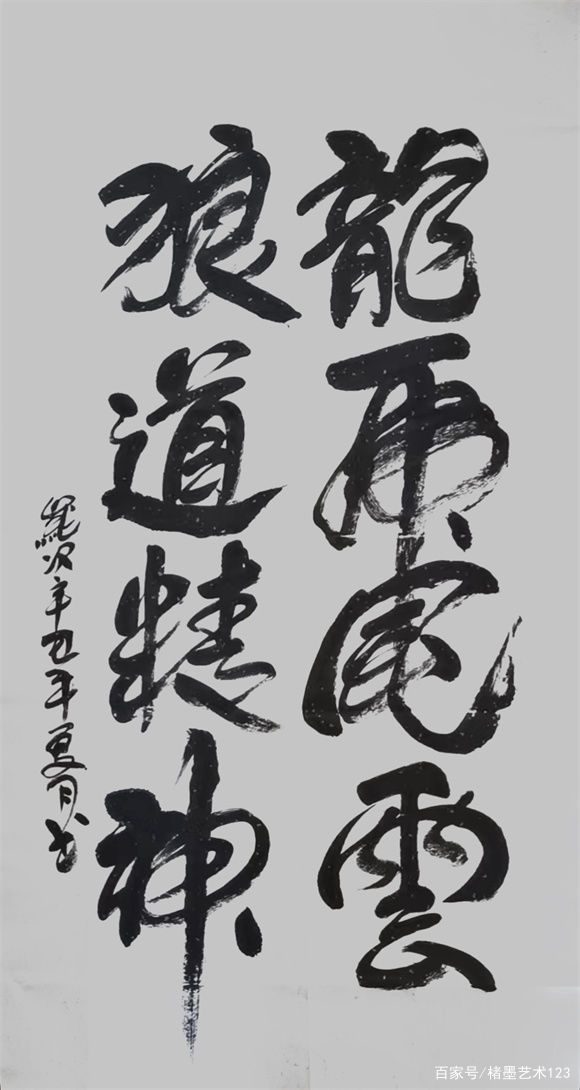 龍虎風雲
狼道精神
歲次辛丑年夏月书
百家号/楮墨艺术123